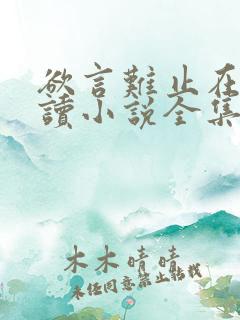 欲言難止在
讀小說全集
木木晴晴
未經同意禁止轉載